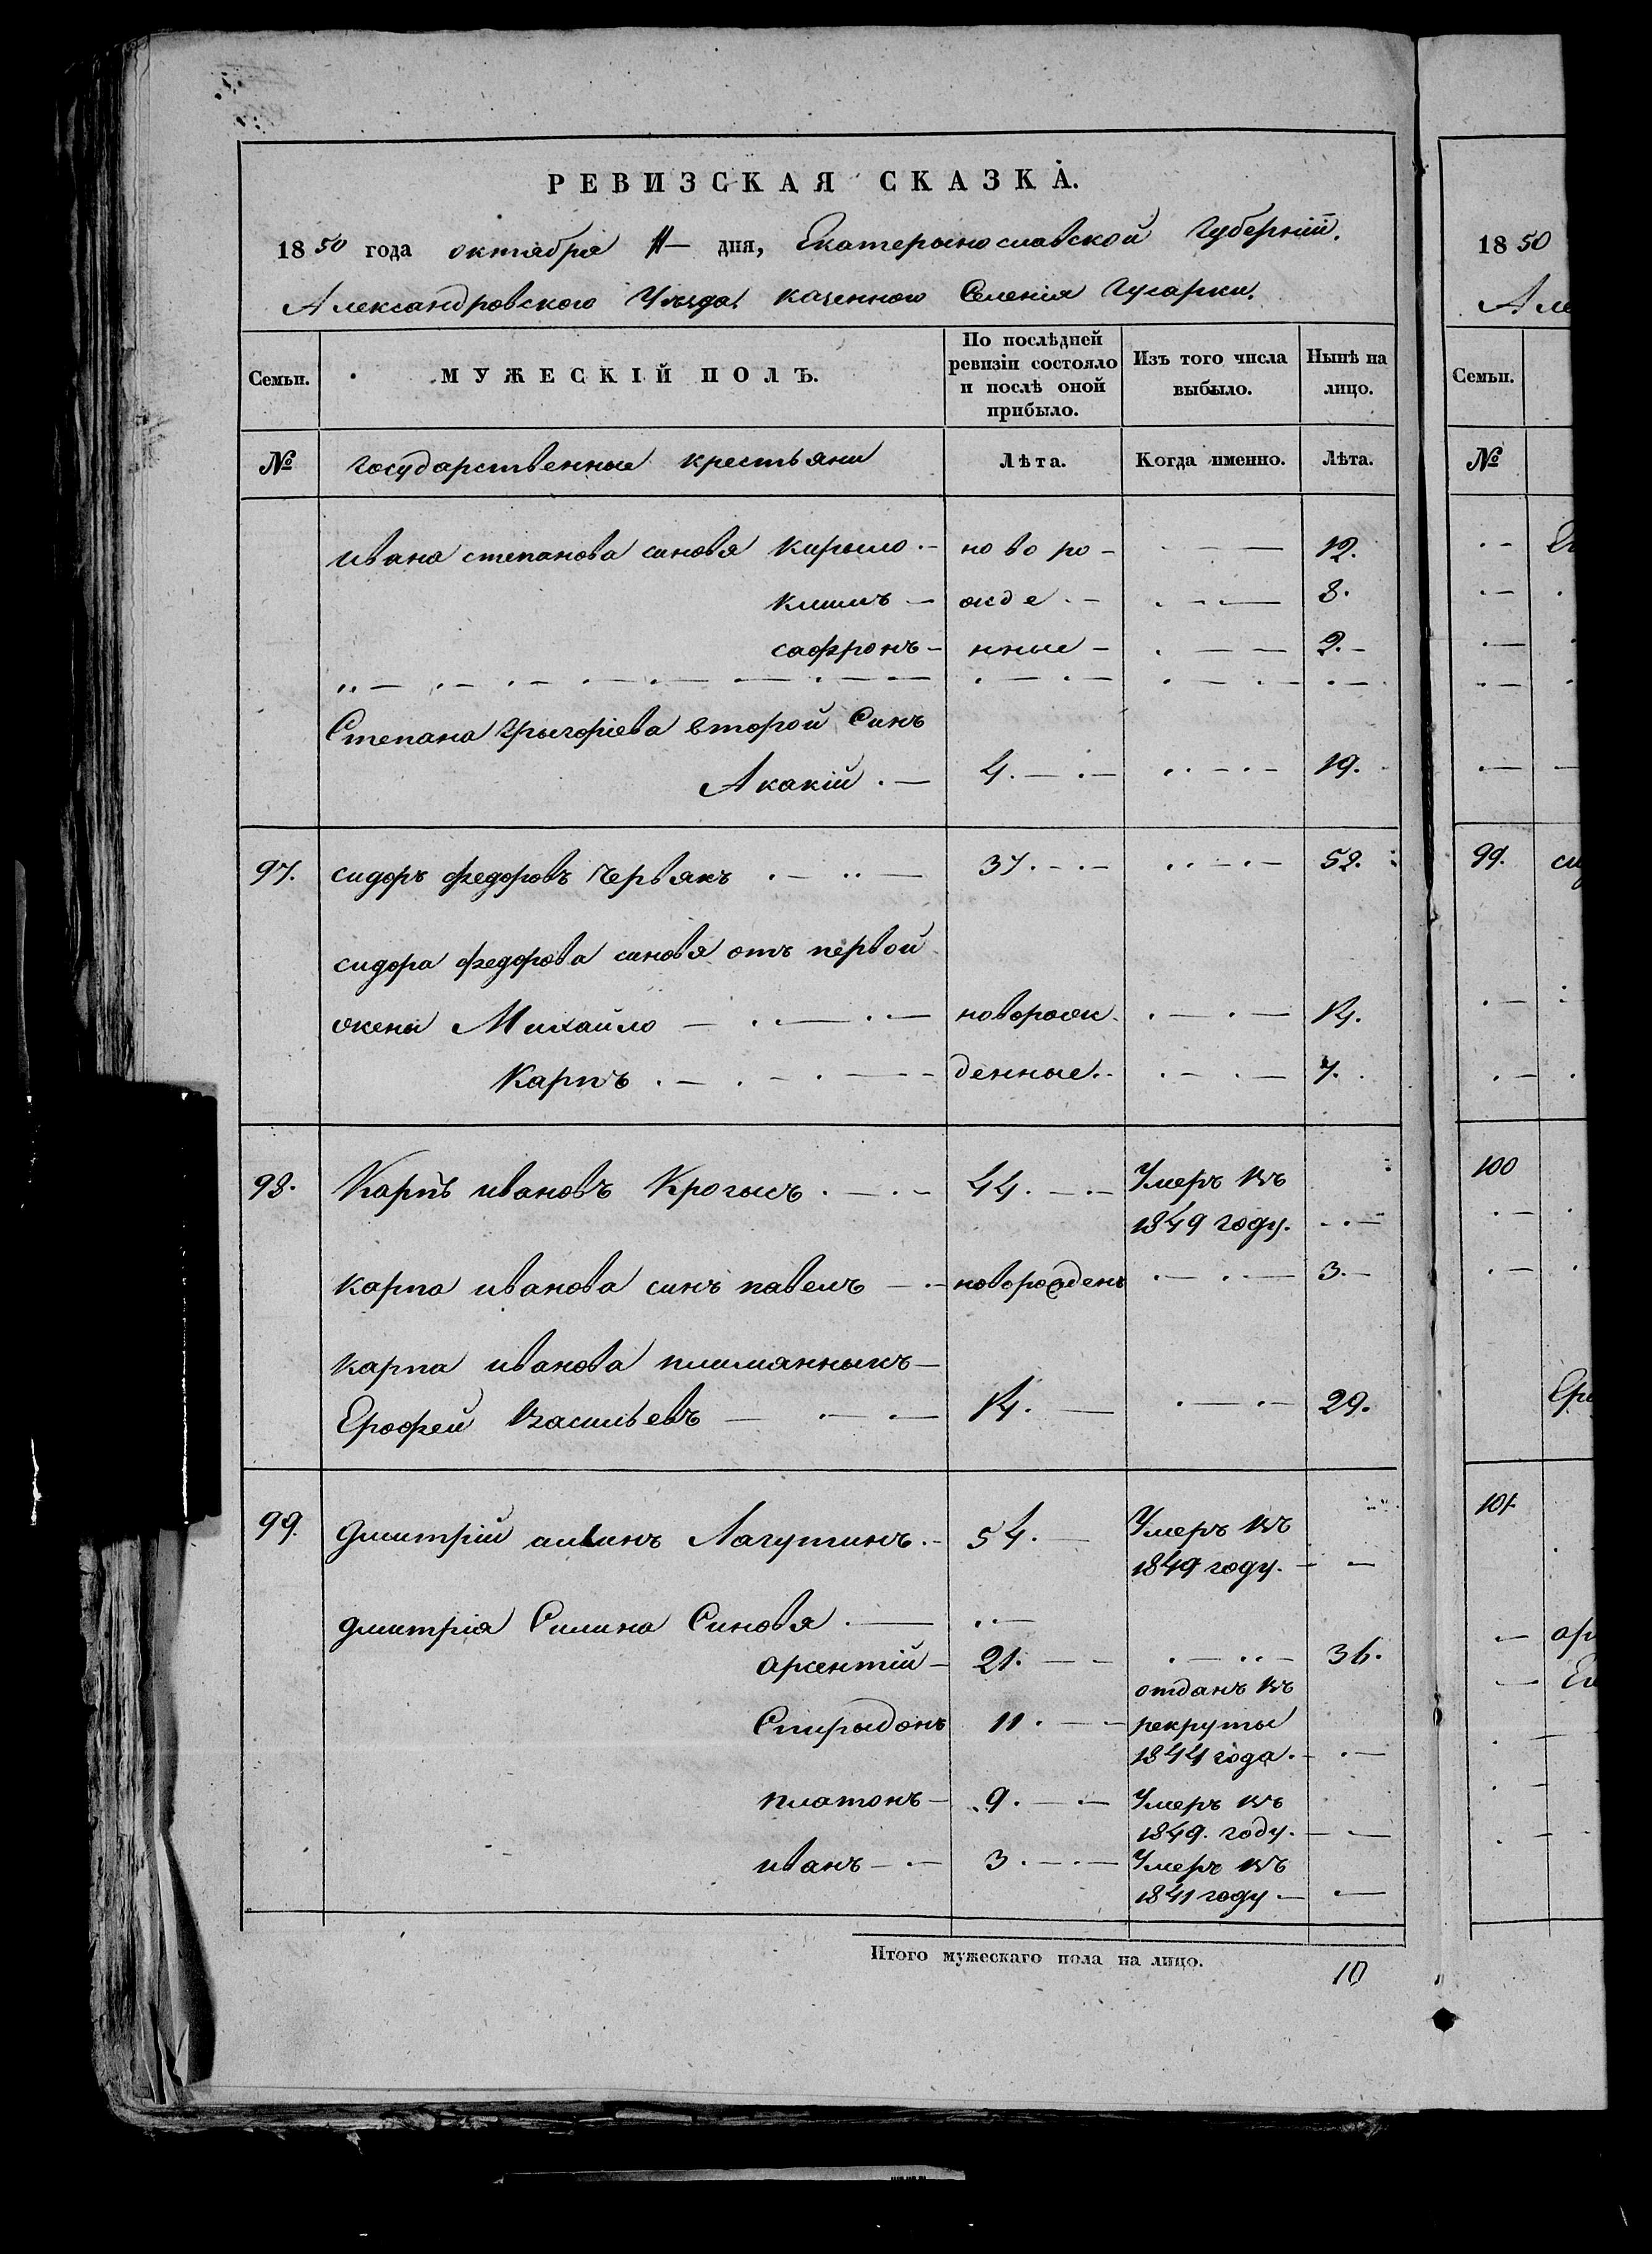 РЕВИЗСКАЯ СКАЗКА.
18 50 года октября дня, Екатерынославской Губерніи.
Александровского Уѣзда казенного Селенія Гусарки.
Семьи. МУЖЕСКІЙ ПОЛЪ. По послѣдней ревизіи состояло и послѣ оной прибыло. Изъ того числа выбыло. Нынѣ на лицо.
№ государственные крестьяни Лѣта. Когда именно. Лѣта.
ивана степанова синовя Кирыло ново ро- 12.
климъ жде 8.
сафронъ нные 2.
Степана Грыгоріева второй Синъ
Акакій 4. 19.
97. сидоръ федоровъ Червякъ 37. 52.
сидора федорова синовя отъ первой
жены Михайло новорож 14.
Карпъ денные 7.
98. Карпъ ивановъ 44. Умеръ въ
1849 году.
карпа иванова синъ павелъ новорожденъ 3.
карпа иванова племянныкъ
Ерофей Васильевъ 14. 29.
99. Дмитрій Лагутинъ 54. Умеръ въ
1849 году.
дмитрія Силина Синовя
арсентій 21. 36.
отданъ въ
Спирыдонъ 11. рекруты
1844 года.
платонъ 9. Умеръ въ
1849. году.
иванъ 3. Умеръ въ
1841 году
Итого мужескаго пола на лицо. 10
18 50
Але
Семьи.
№
99.
100
101